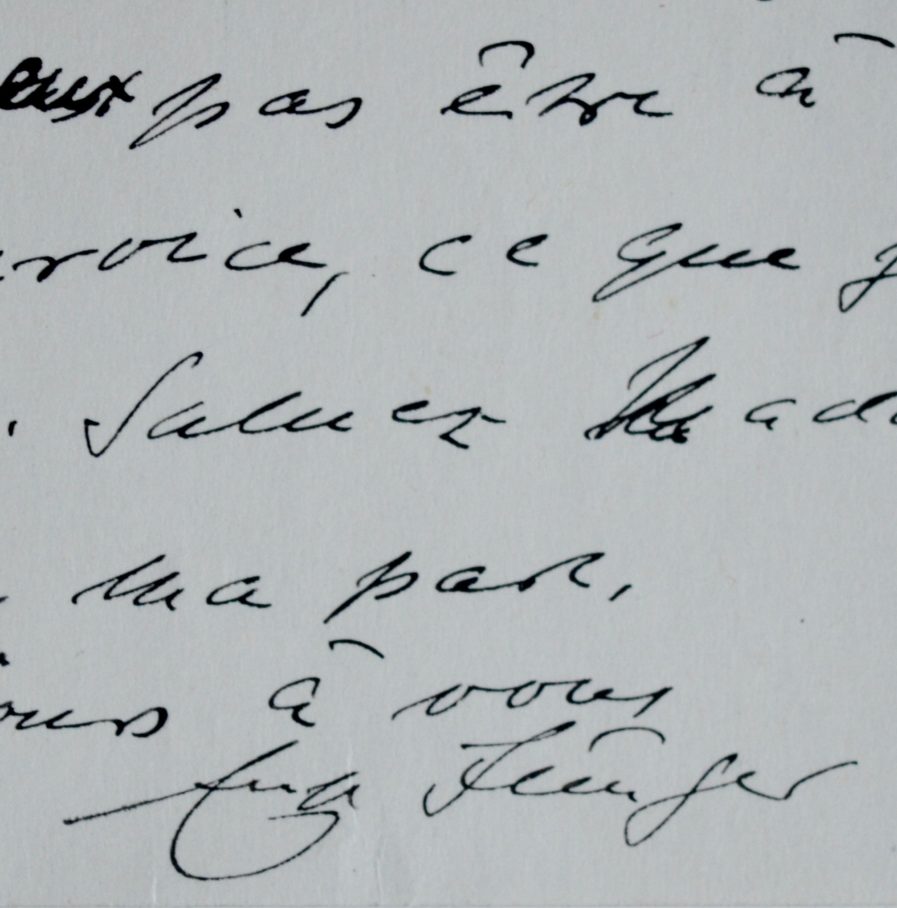 pas être à
ervice, ce que j
. Saluez Mada
ma part,
ours à vous
Ernst Jünger